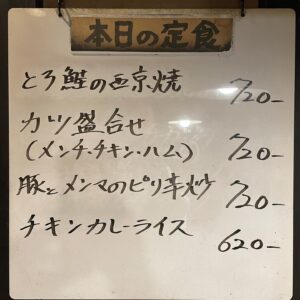 本日の定食
とろ鮭の西京焼 720-
カツ盛合せ
(メンチ・チキン・ハム) 720-
豚とメンマのピリ辛炒 720-
チキンカレーライス 620-